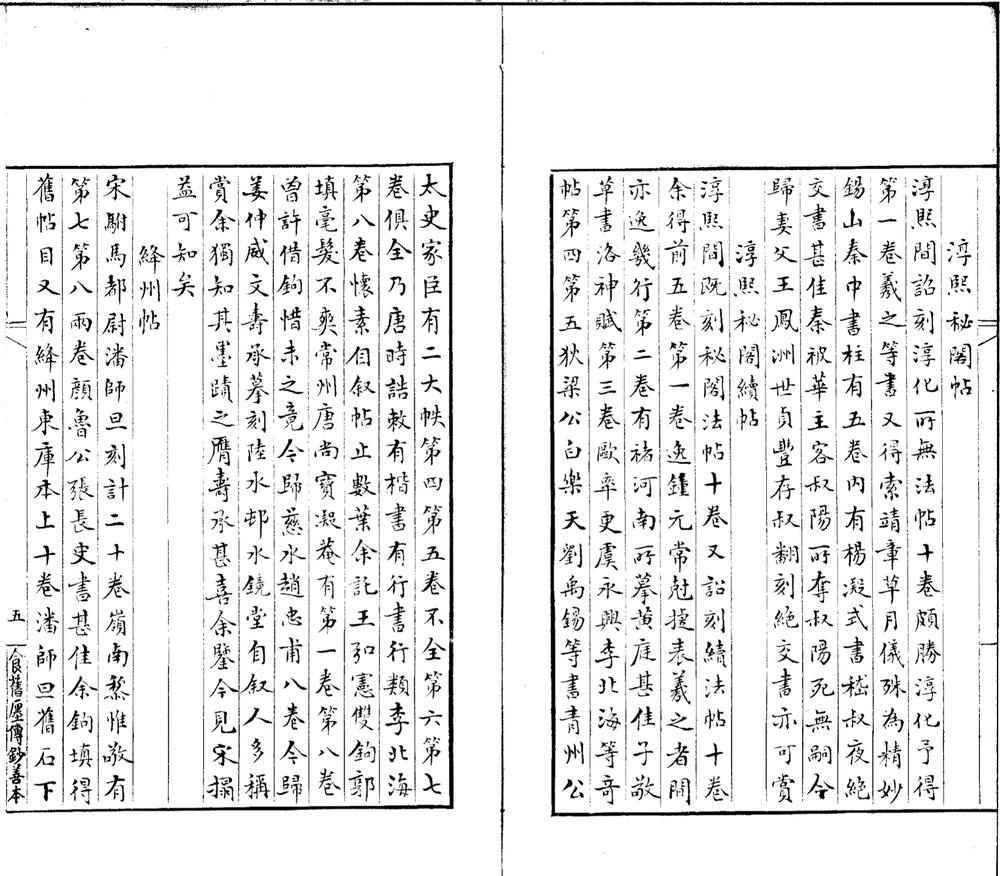 淳熙秘閣帖
淳熙間詔刻淳化所無法帖十卷頗勝淳化予得
第一卷羲之等書又得索靖章草月儀殊為精妙
錫山秦中書柱有五卷內有楊凝式書嵇叔夜絕
交書甚佳秦被華主客叔陽所奪叔陽死無嗣今
歸妻父王鳳洲世貞豐存叔翻刻絕交書亦可賞
淳熙秘閣續帖
淳熙間既刻秘閣法帖十卷又詔刻續法帖十卷
余得前五卷第一卷逸鍾元常尅捷表羲之者閒
亦逸幾行第二卷有褚河南所摹黃庭甚佳子敬
草書洛神賦第三卷歐率更虞永興李北海等奇
帖第四第五狄梁公白樂天劉禹錫等書青州公
太史家臣有二大帙第四第五卷不全第六第七
卷俱全乃唐時誥敕有楷書有行書行類李北海
第八卷懷素自叙帖止數葉余託王弘憲雙鉤郭
填毫髮不爽常州唐尚寶凝菴有第一卷第八卷
曾許借鉤惜未之竟今歸慈水趙忠甫八卷今歸
姜仲咸文壽承摹刻陸水邨水鏡堂自叙人多稱
賞余獨知其墨蹟之贋壽承甚喜余鑒今見宋搨
益可知矣
絳州帖
宋駙馬都尉潘師旦刻計二十卷嶺南黎惟敬有
第七第八兩卷顏魯公張長史書甚佳余鉤填得
舊帖目又有絳州東庫本上十卷潘師旦舊石下
五
食舊廛傳鈔善本